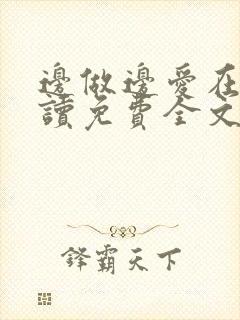 邊做邊愛在
讀免費全文
鋒霸天下